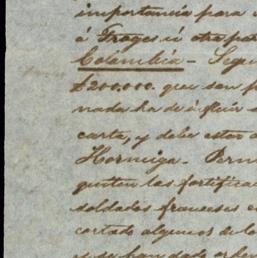 importancia para
á Froges ú otra pa
Colombia - Segu
$200.000. que son p
nada ha de ú fluir
carta, y debe estar
Hormiga. Perm
quiten las fortifica
soldados franceses e
cortado algunos de lo
y se han dado orden